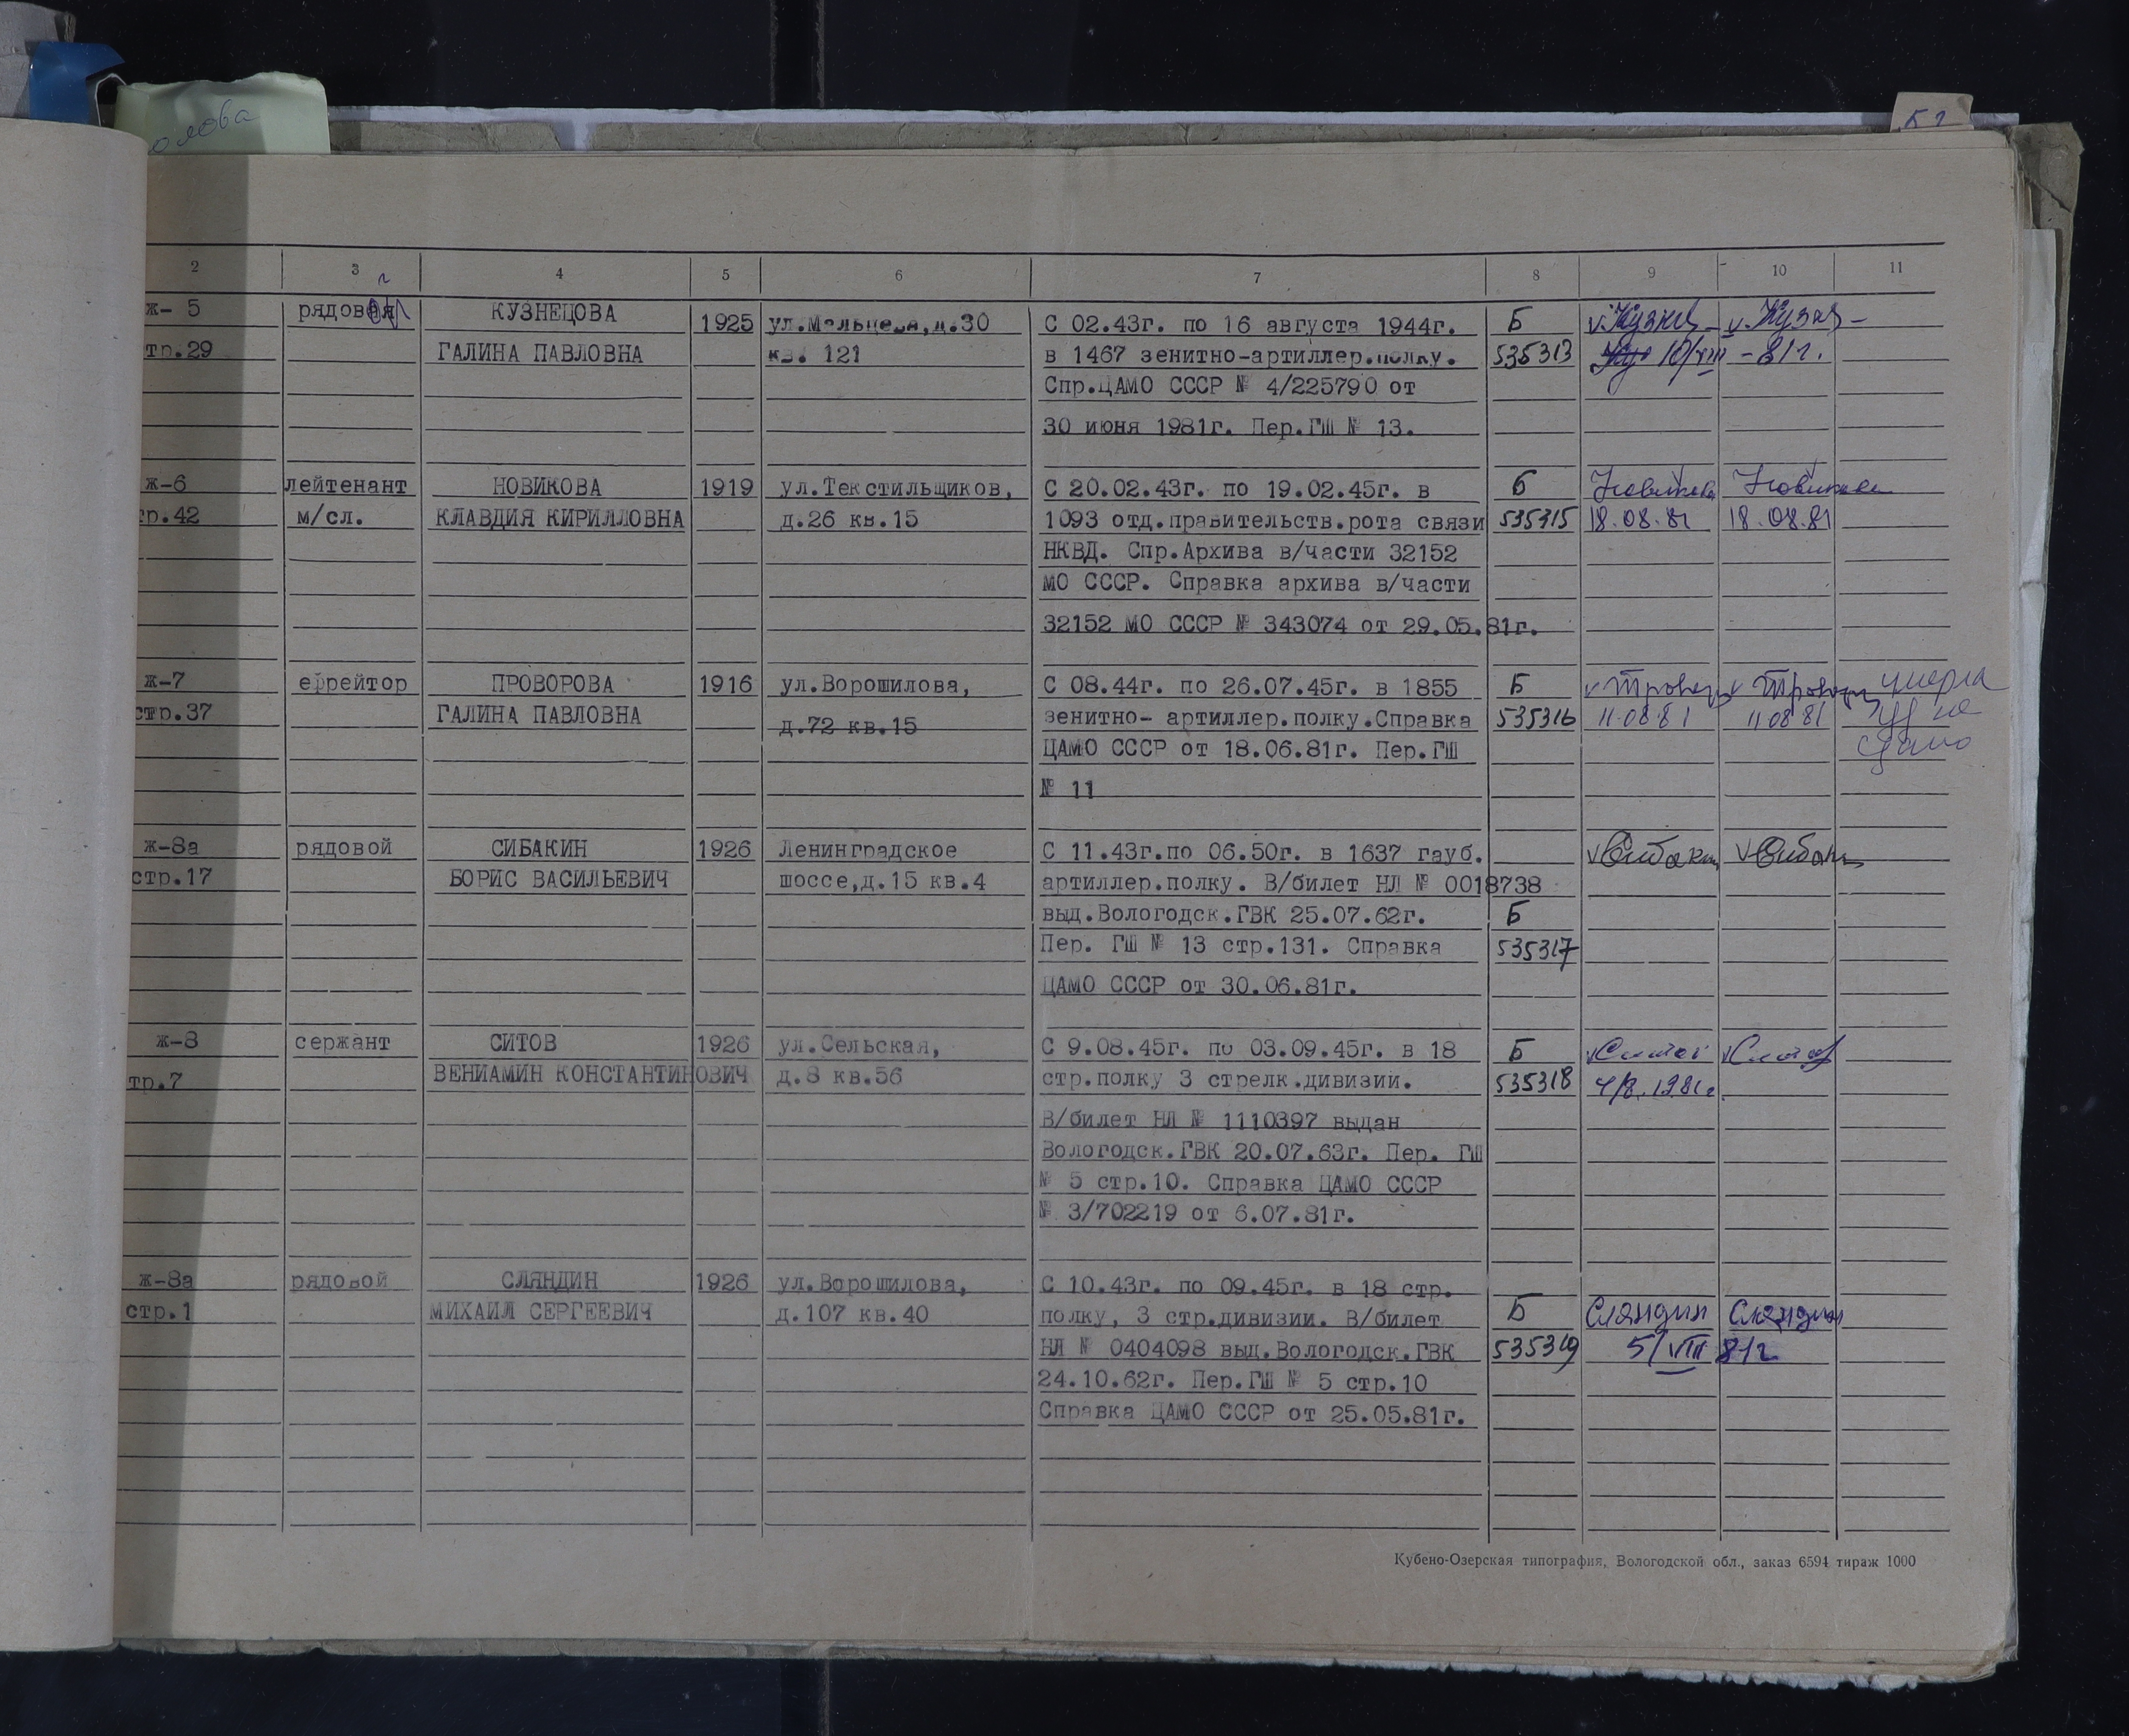 олова
2 3 4 5 6 7 8 9 10 11
ж- 5 рядовая КУЗНЕЦОВА 1925 ул.Мальцева,д.30 С 02.43г. по 16 августа 1944г. Б v.Кузнец- v.Кузн-
тр.29 ГАЛИНА ПАВЛОВНА кв. 121 в 1467 зенитно-артиллер.полку. 535313 10/VIII -81г.
Спр.ЦАМО СССР № 4/225790 от
30 июня 1981г. Пер.ГШ № 13.
ж-6 лейтенант НОВИКОВА 1919 ул.Текстильщиков, С 20.02.43г. по 19.02.45г. в Б Новикова Новикова
тр.42 м/сл. КЛАВДИЯ КИРИЛЛОВНА д.26 кв.15 1093 отд.правительств.рота связи 535315 18.08.81 18.08.81
НКВД. Спр.Архива в/части 32152
МО СССР. Справка архива в/части
32152 МО СССР № 343074 от 29.05.81г.
ж-7 ефрейтор ПРОВОРОВА 1916 ул.Ворошилова, С 08.44г. по 26.07.45г. в 1855 Б умерла
стр.37 ГАЛИНА ПАВЛОВНА д.72 кв.15 зенитно- артиллер.полку.Справка 535316 11.08.81 11 08 81 уд не
ЦАМО СССР от 18.06.81г. Пер.ГШ сдано
№ 11
ж-8а рядовой СИБАКИН 1926 Ленинградское С 11.43г.по 06.50г. в 1637 гауб. vСибакин vСибакин
стр.17 БОРИС ВАСИЛЬЕВИЧ шоссе,д.15 кв.4 артиллер.полку. В/билет НЛ № 0018738
выд.Вологодск.ГВК 25.07.62г. Б
Пер. ГШ № 13 стр.131. Справка 535317
ЦАМО СССР от 30.06.81г.
ж-8 сержант СИТОВ 1926 ул.Сельская, С 9.08.45г. по 03.09.45г. в 18 Б vСитов vСитов
тр.7 ВЕНИАМИН КОНСТАНТИНОВИЧ д.8 кв.56 стр.полку 3 стрелк.дивизии. 535318 4/8.1981г.
В/билет НЛ № 1110397 выдан
Вологодск.ГВК 20.07.63г. Пер. ГШ
№ 5 стр.10. Справка ЦАМО СССР
№ 3/702219 от 6.07.81г.
ж-8а рядовой СЛЯНДИН 1926 ул.Ворошилова, С 10.43г. по 09.45г. в 18 стр.
стр.1 МИХАИЛ СЕРГЕЕВИЧ д.107 кв.40 полку, 3 стр.дивизии. В/билет Б Сляндин Сляндин
НЛ № 0404098 выд.Вологодск.ГВК 535319 5/VIII 81г
24.10.62г. Пер.ГШ № 5 стр.10
Справка ЦАМО СССР от 25.05.81г.
Кубено-Озерская типография, Вологодской обл., заказ 6594 тираж 1000